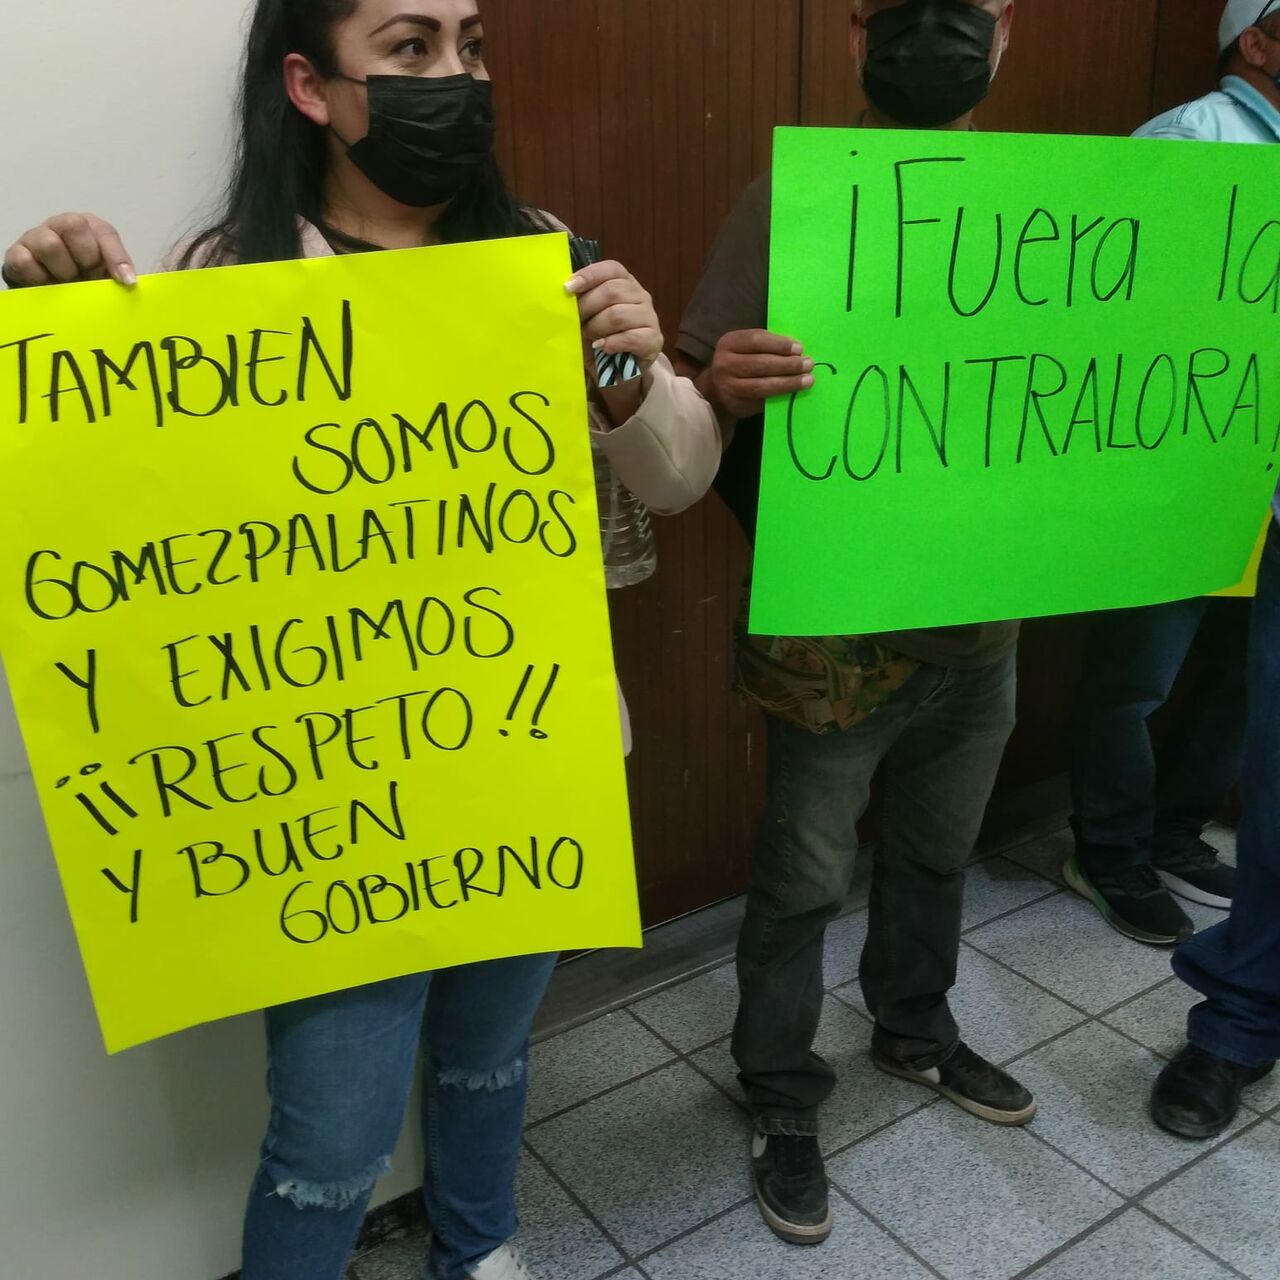 TAMBIEN
SOMOS
GOMEZPALATINOS
Y EXIGIMOS
¡¡RESPETO!!
Y BUEN
GOBIERNO
¡Fuera la
CONTRALORA!